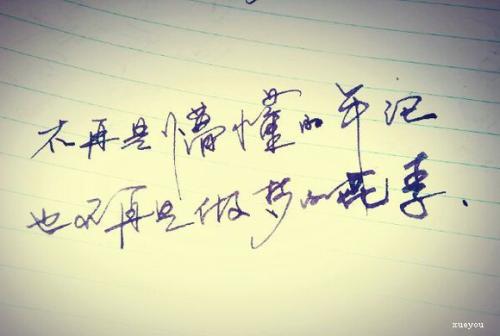 不再是懵懂的年纪
也不再是做梦的花季.
xueyou